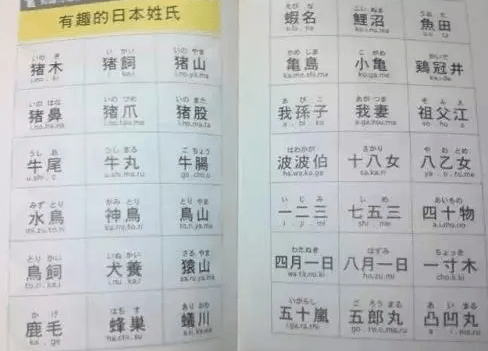 有趣的日本姓氏
いの き　い かい　いの やま
猪木　猪飼　猪山
いの はな　いの づめ　いの また
猪鼻　猪爪　猪股
うし お　うし まる　ご ちょう
牛尾　牛丸　牛腸
u.shi.o　u.shi.ma.ru　go.cho.u
みず とり　かみ とり　とり やま
水鳥　神鳥　鳥山
mi.zu.to.ri　ka.mi.to.ri　to.ri.ya.ma
とり かい　いぬ かい　さる やま
鳥飼　犬養　猿山
to.ri.ka.i　i.nu.ka.i　sa.ru.ya.ma
か げ　はち す　あり かわ
鹿毛　蜂巣　蟻川
ka.ge　ha.chi.su
えび な　こい ぬま　うお た
蝦名　鯉沼　魚田
かめ しま　こ がめ　かいで
亀島　小亀　鶏冠井
ka.me.shi.ma　ko.ga.me　ka.i.de
あ び こ　あが つま　そ ふ え
我孫子　我妻　祖父江
a.bi.ko　a.ga.tsu.ma　so.hu.e
はわかが　さかり　や おとめ
波波伯　十八女　八乙女
ha.wa.ka.ga　sa.ka.ri
い じ み　し め　あいもの
一二三　七五三　四十物
i.ji.mi　shi.me　a.i.mo.no
わたぬき　はずみ　ちょっき
四月一日　八月一日　一寸木
wa.ta.nu.ki　ha.zu.mi　cho.k.ki
いがらし　ご ろう まる　あ い まる
五十嵐　五郎丸　凸凹丸
i.ga.ra.shi　go.ro.u.ma.ru　a.i.ma.ru